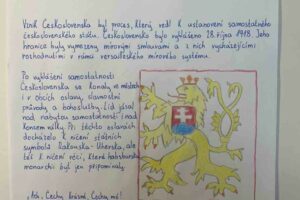 Vznik Československa byl proces, který vedl k ustanovení samostatného
československého státu. Československo bylo vyhlášeno 28. října 1918. Jeho
hranice byly vymezeny mírovými smlouvami a z nich vycházejícími
rozhodnutími v rámci versailleského mírového systému.
Po vyhlášení samostatnosti
Československa se konaly ve městech
i v obcích oslavy, slavnostní
průvody a bohoslužby. Lid jásal
nad nabytou samostatností i nad
koncem války. Při těchto oslavách
docházelo k ničení státních
symbolů Rakouska-Uherska, ale
též k ničení věcí, které habsburskou
monarchii byť jen připomínaly.
Čechy krásné, Čechy mé!